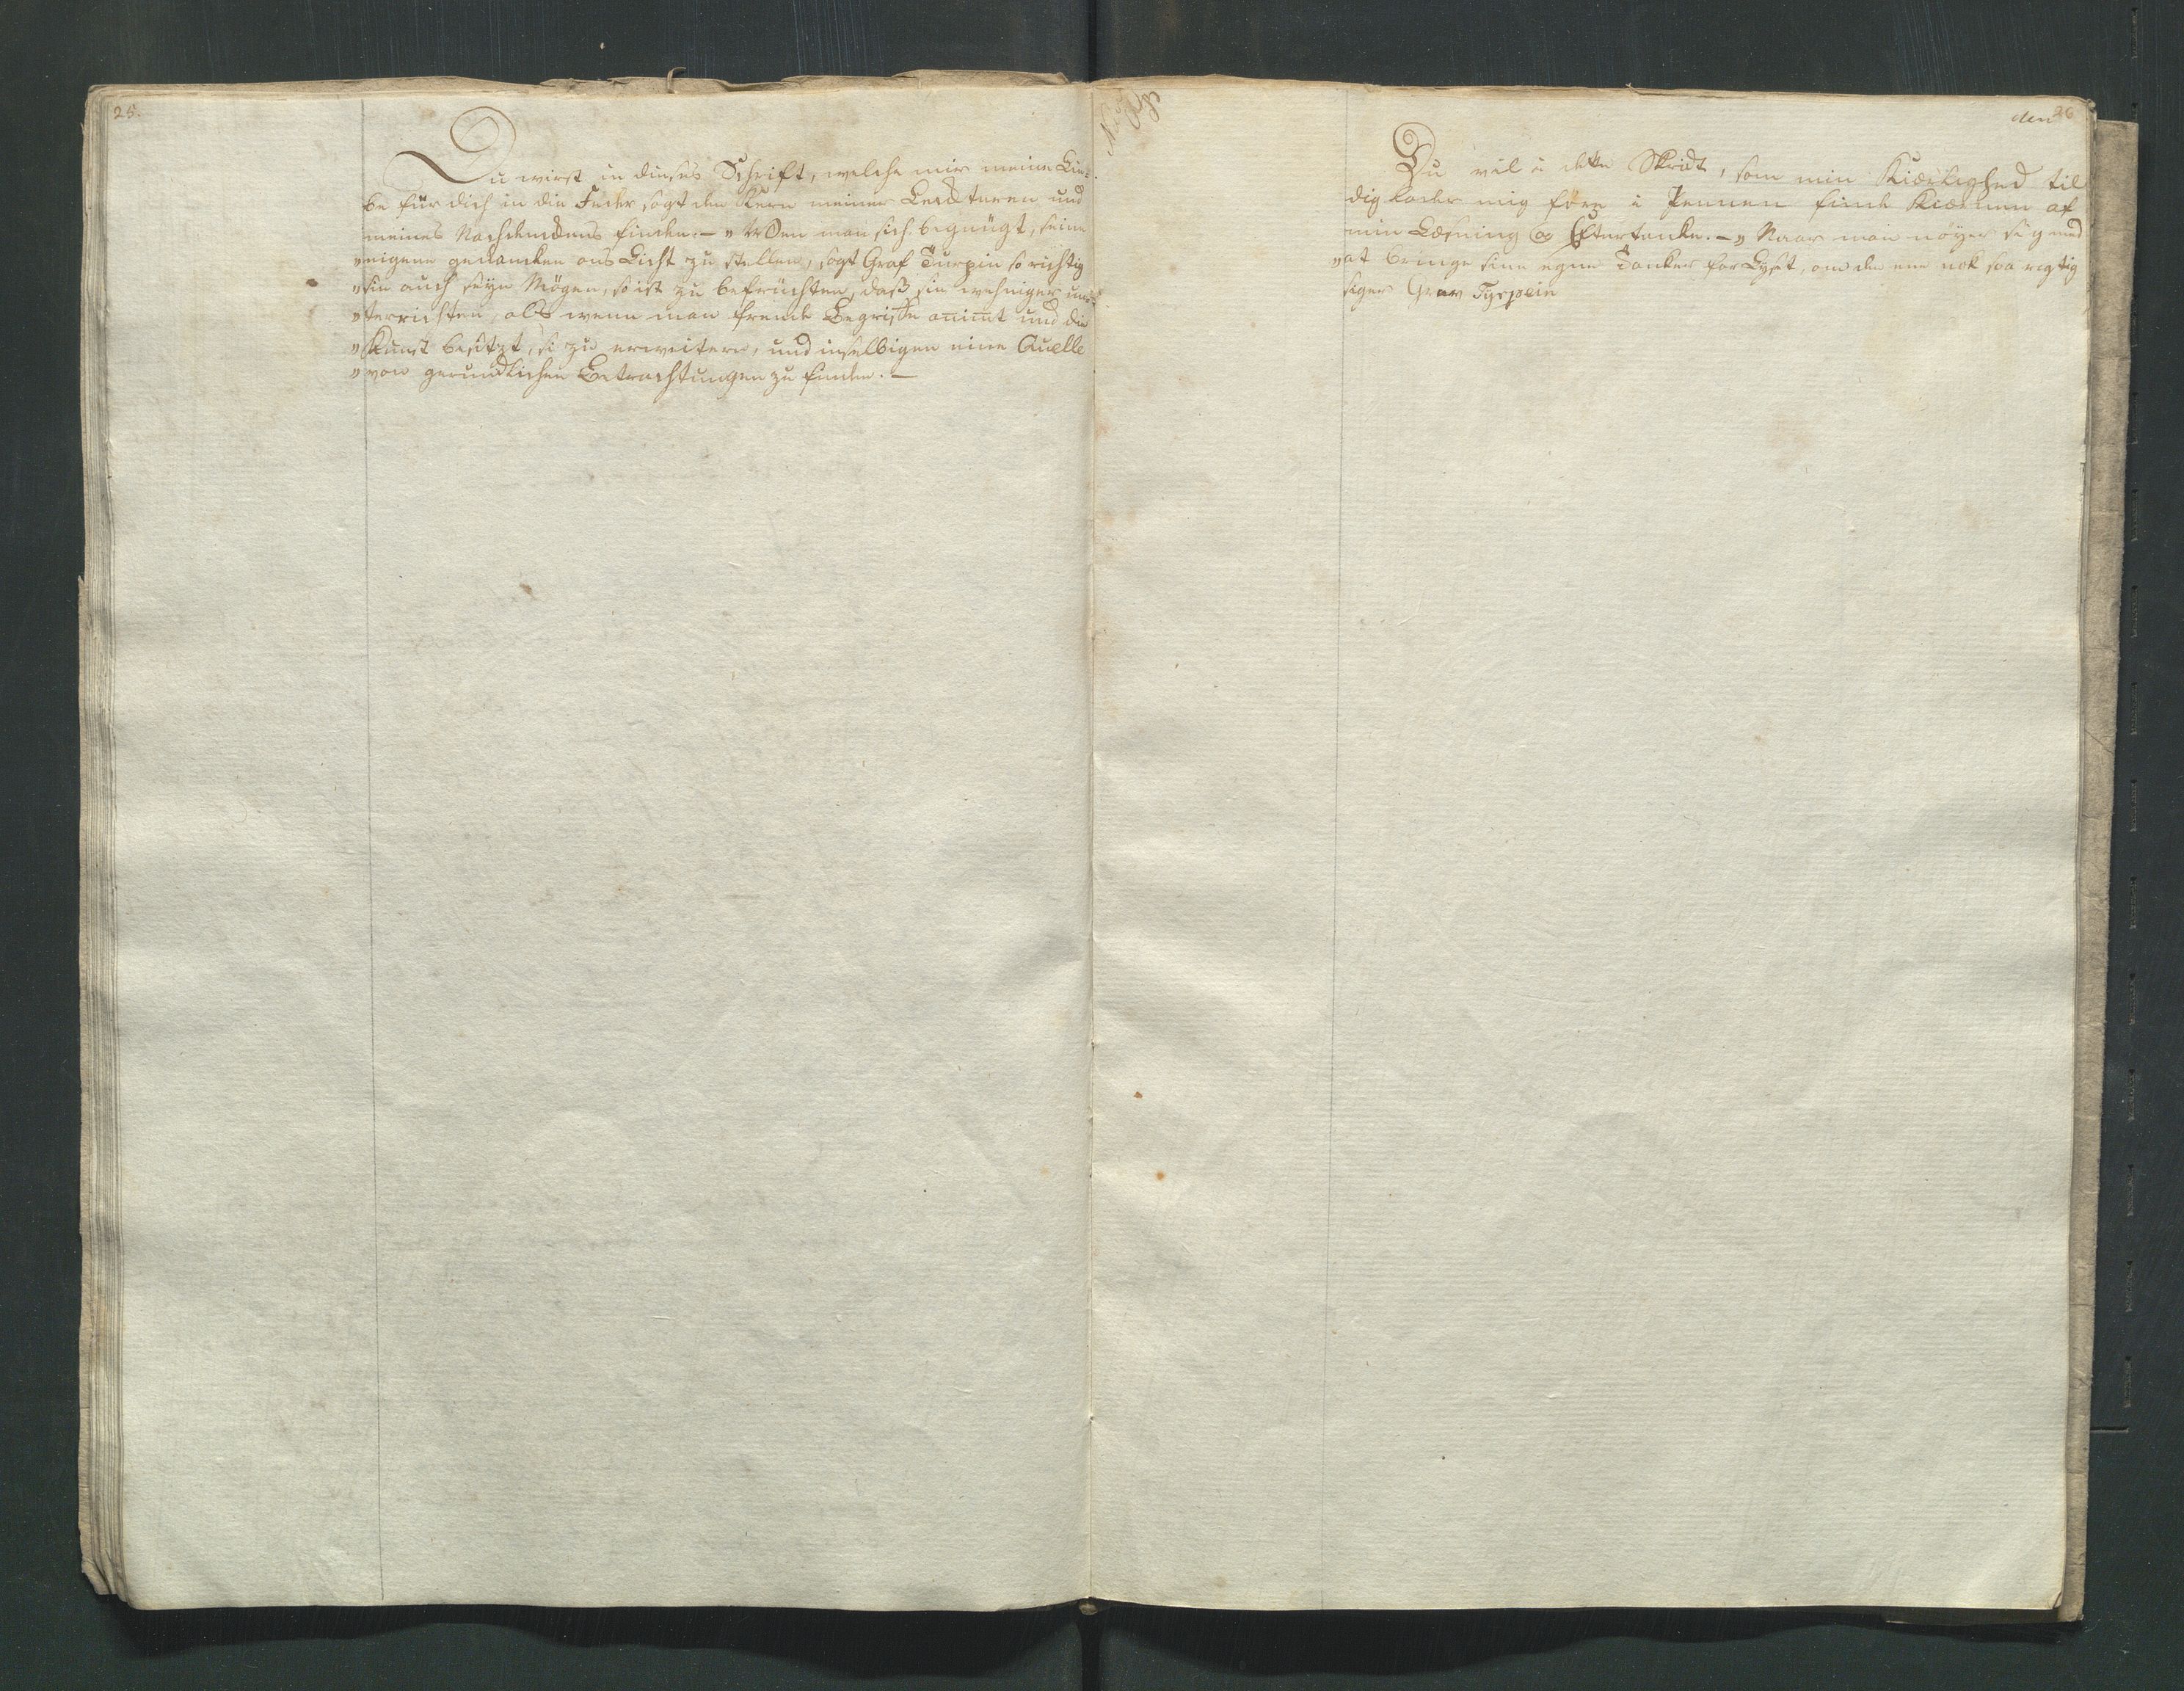 25.
Du wirst in dieses Schrift, welche mir meine Lie-
be für dich in die Feder sagt den Kern meiner Leckturen und
meines Nachdenckens finden. – „ Wen man sich begnügt, seine
„eigene gedancken ans Licht zu stellen, sagt Graf Turpin so richtig
„sie auch seyn Mögen, so ist zu befrüchten, daß sie wehniger un-
„terrichten, als wenn man fremde Begriffe animt und die
„Kunst besitzt, si zu erweitern, und inselbigen eine Quelle
„von gerundlichen Betrachtungen zu finden. –
26
den
Du vil i dette Skridt, som min Kiærlighed til
dig lader mig føre i Pennen finde Kiærnen af
min Læsning og Eftertanke. – „ Naar man nøyer sig med
„at bringe sine egne Tanker for Lyset, om de ene nok saa rigtig
siger Grav Tyrpin